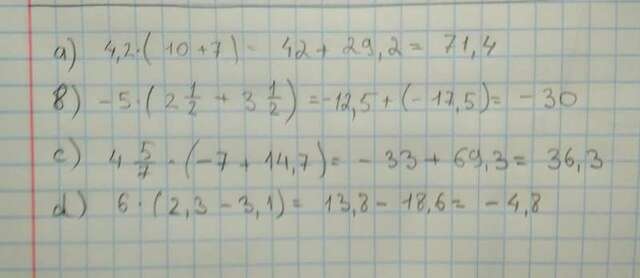 a) 4,2·(10+7) - 42 + 29,2 = 71,4
B) -5·(2 1/2 + 3 1/2) = -12,5 + (-17,5) = -30
c) 4 5/7 · (-7 + 14,7) = -33 + 69,3 = 36,3
d) 6·(2,3 - 3,1) = 13,8 - 18,6 = -4,8